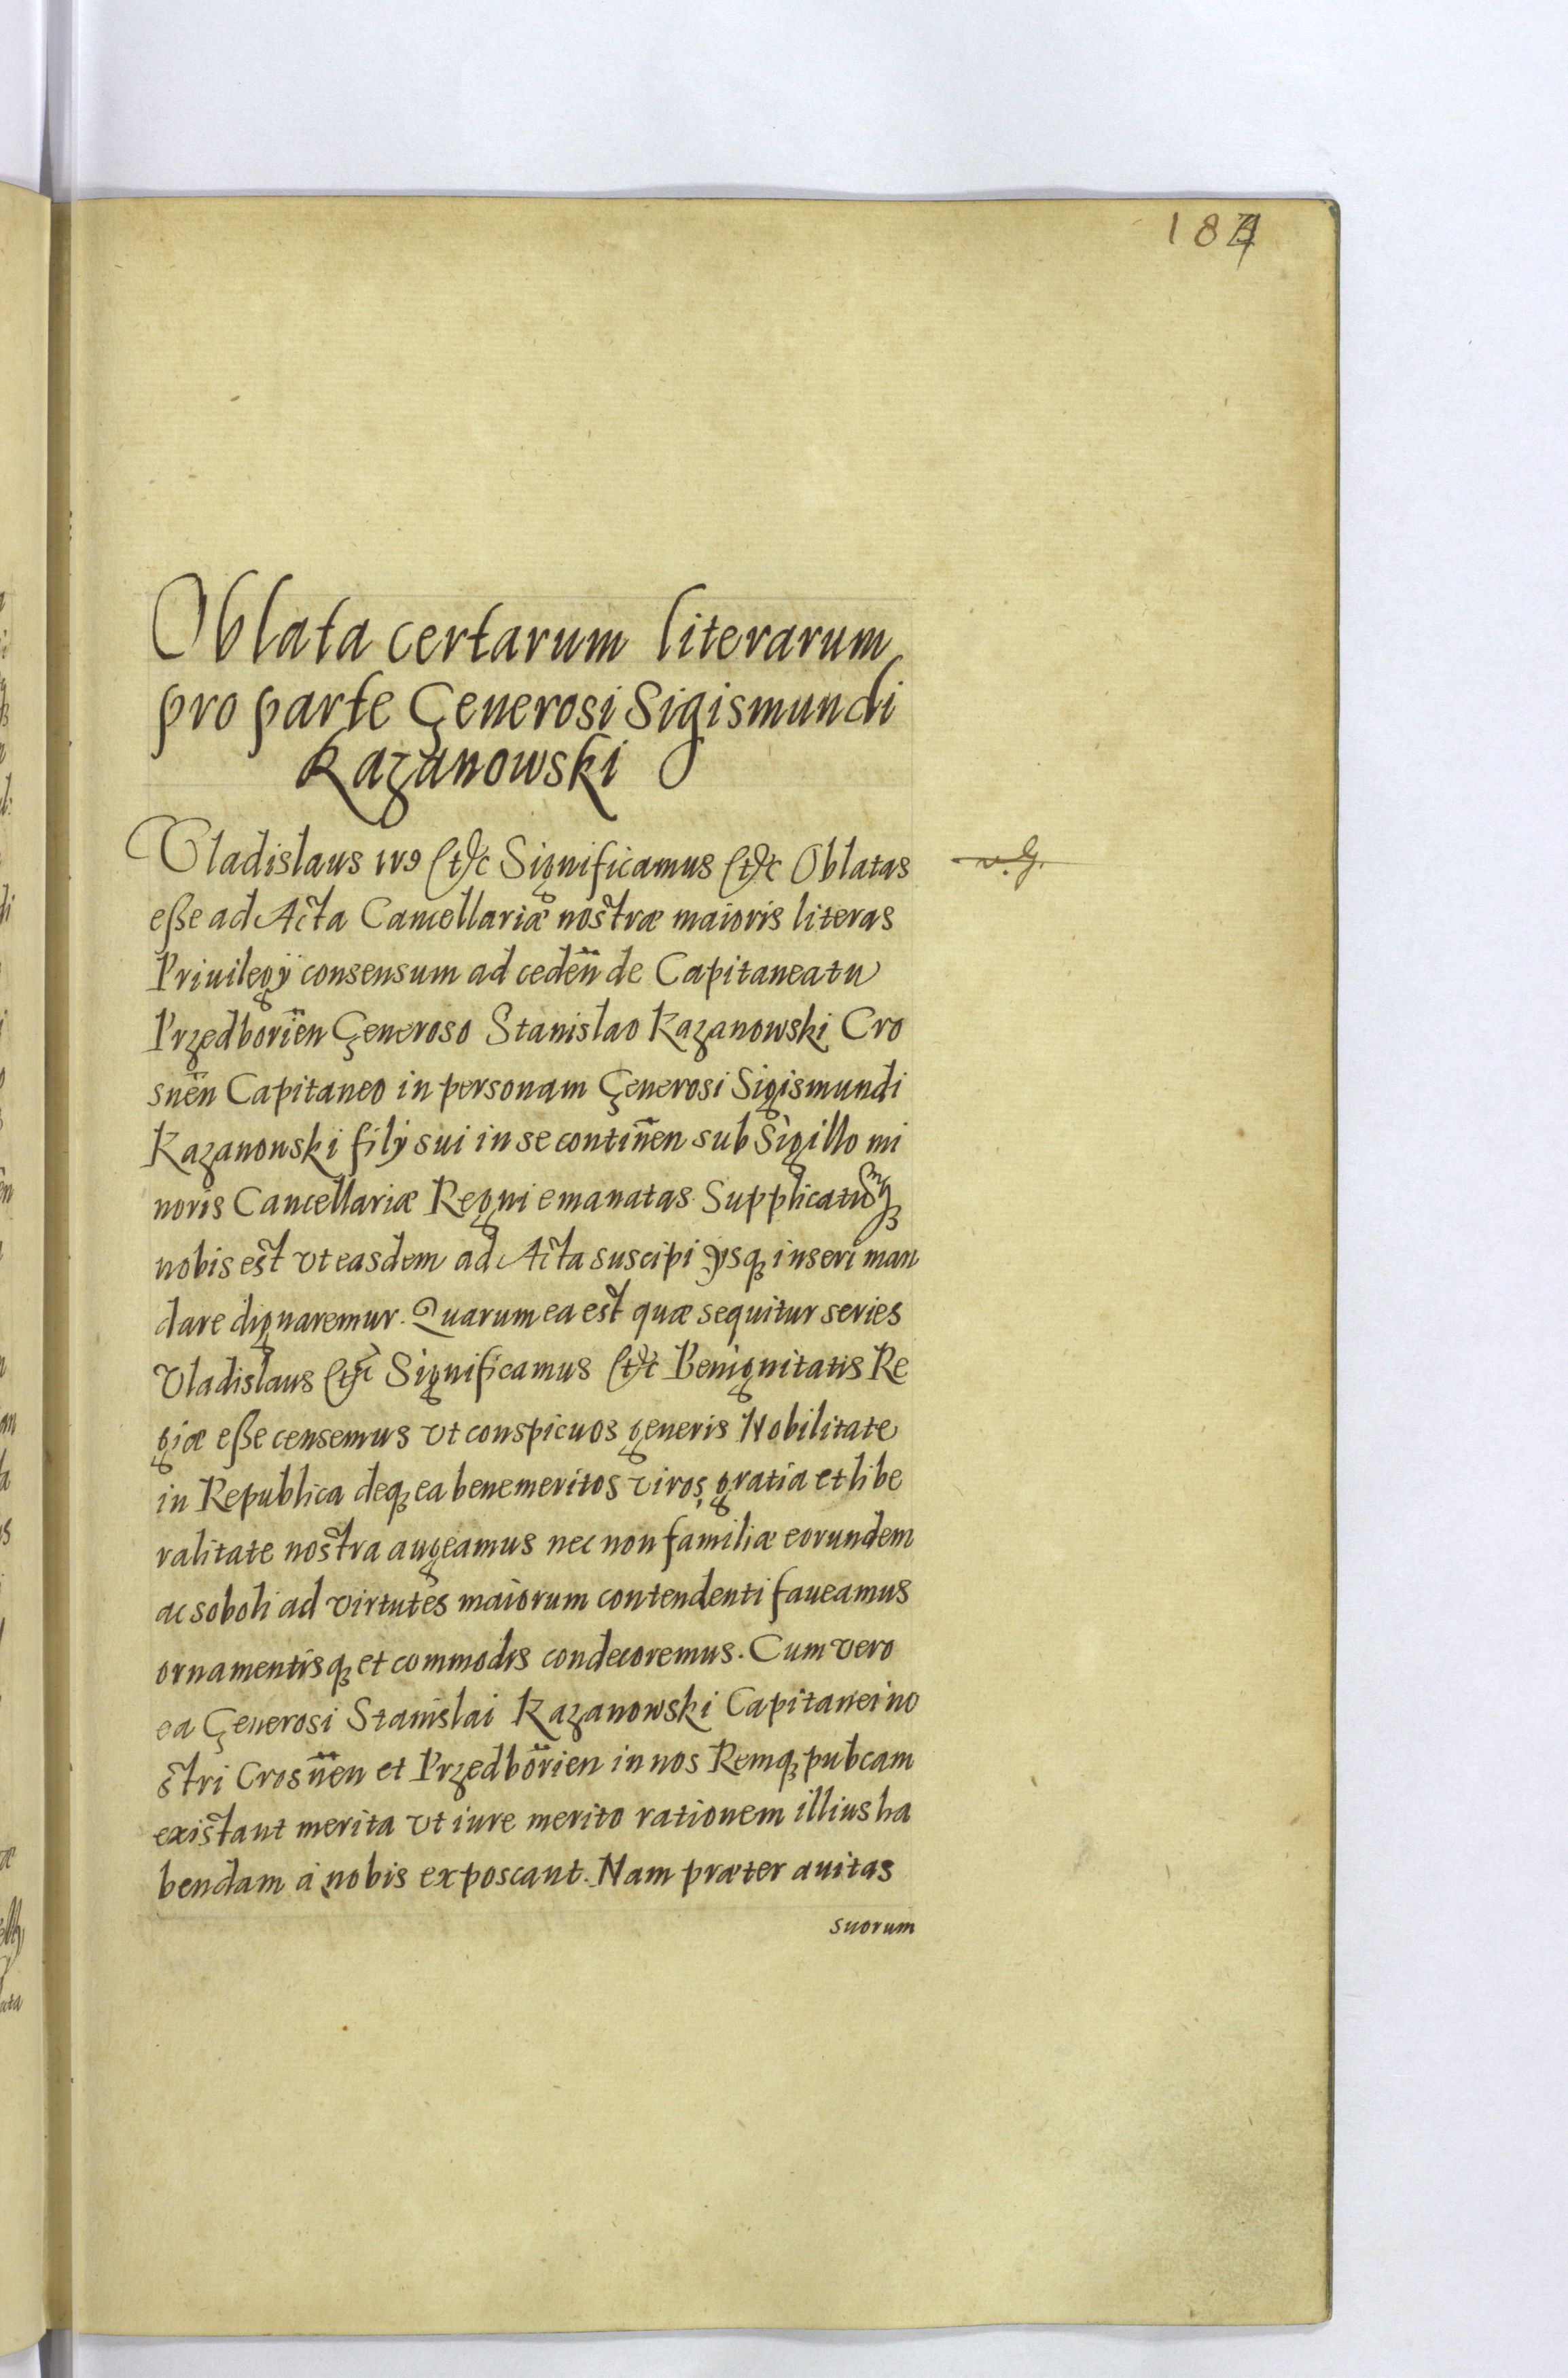 Oblata certarum literarum
pro parte Generosi Sigismundi
Kazanowski
Vladislaus IV9 etc Significamus etc Oblatas
eße ad Acta Cancellariæ nostræ maioris literas
Priuilegÿ consensum ad cedeñ de Capitaneatu
Przedborieñ Generoso Stanislao Kazanowski Cro
sneñ Capitaneo in personam Generosi Sigismundi
Kazanowski filÿ sui in se contineñ sub Sigillo mi
noris Cancellariæ Regni emanatas Supplicatumq
nobis est vt easdem ad Acta suscipi ÿsq inseri man
dare dignaremur. Quarum ea est quæ sequitur series
Vladislaus etc Significamus etc Benignitatis Re
giæ eße censemus vt conspicuos generis Nobilitate
in Republica deq ea benemeritos viros gratia et libe
ralitate nostra augeamus nec non familiæ eorundem
ac soboli ad virtutes maiorum contendenti faueamus
ornamentisq et commodis condecoremus. Cum vero
ea Generosi Stanislai Kazanowski Capitanei no
stri Crosneñ et Przedborieñ in nos Remq pubcam
existant merita vt iure merito rationem illius ha
bendam à nobis exposcant. Nam præter auitas
suorum